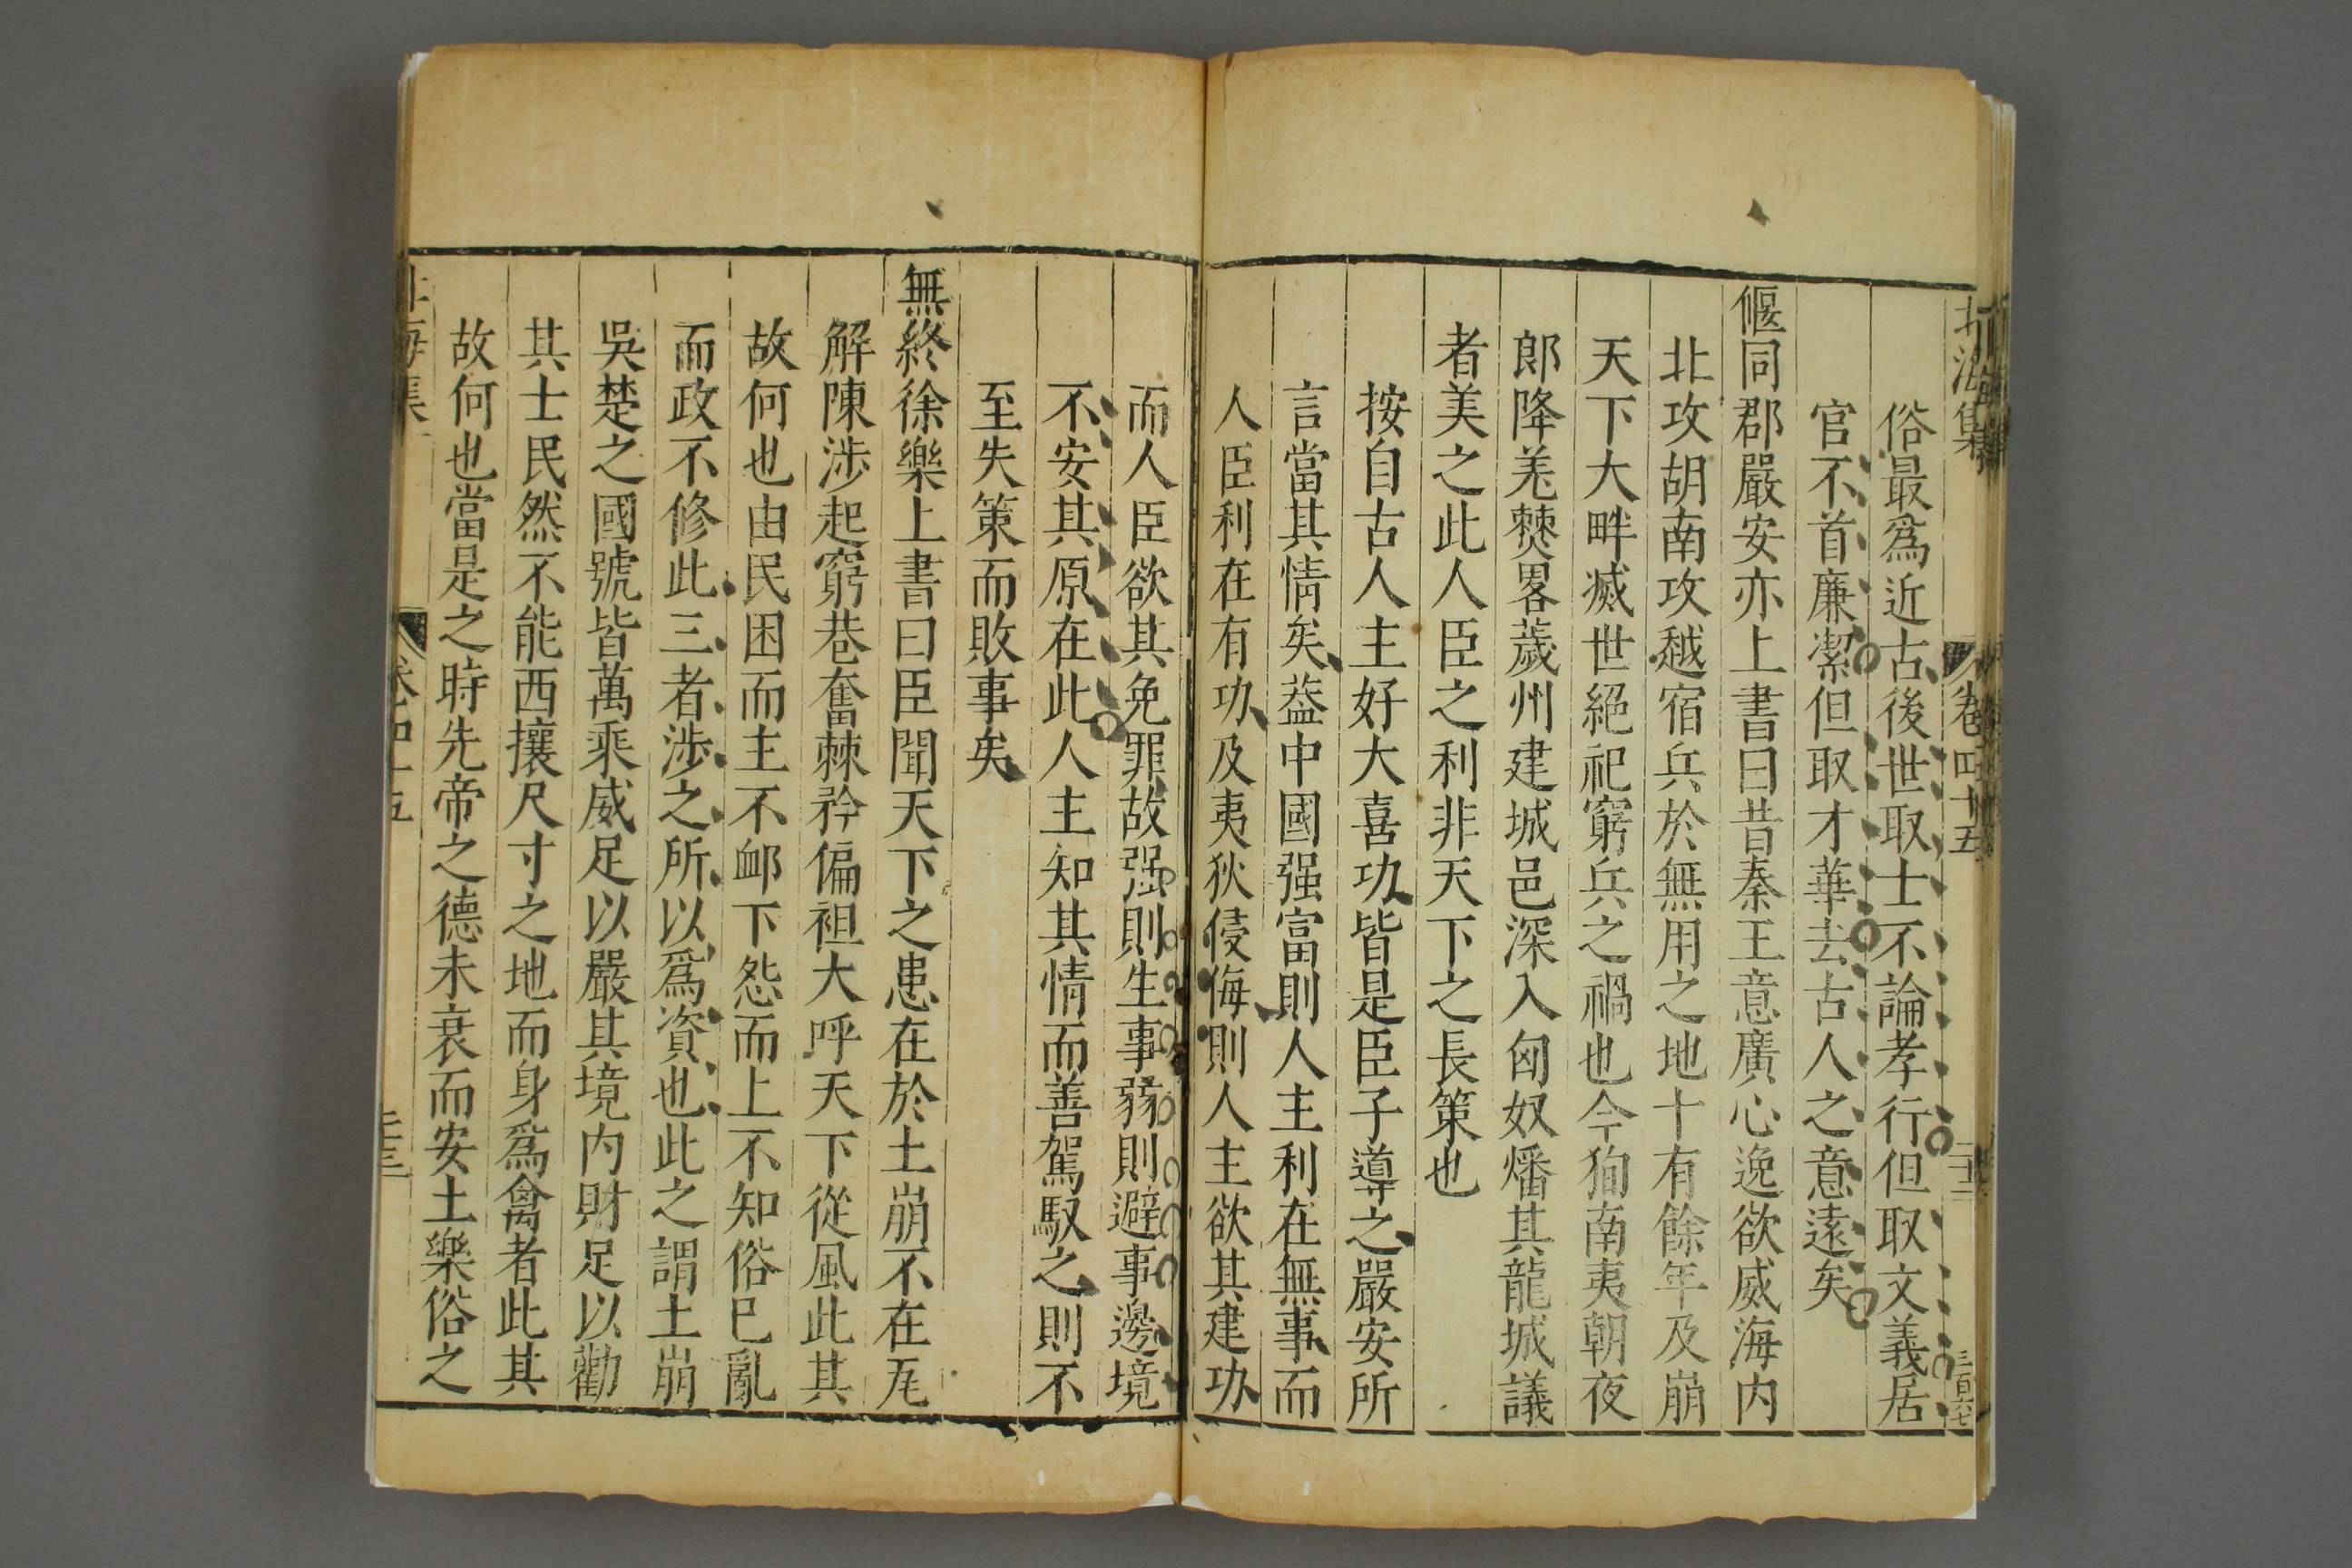 北海集 卷四十五 三百六七
俗最爲近古後世取士不論孝行但取文義居
官不首廉潔但取才華去古人之意遠矣
偃同郡嚴安亦上書曰昔秦王意廣心逸欲威海内
北攻胡南攻越宿兵於無用之地十有餘年及崩
天下大畔滅世絕祀窮兵之禍也今狥南夷朝夜
郎降羌僰畧薉州建城邑深入匈奴燔其龍城議
者美之此人臣之利非天下之長策也
按自古人主好大喜功皆是臣子導之嚴安所
言當其情矣葢中國强富則人主利在無事而
人臣利在有功及夷狄侵侮則人主欲其建功
而人臣欲其免罪故强則生事弱則避事邊境
不安其原在此人主知其情而善駕馭之則不
至失策而敗事矣
無終徐樂上書曰臣聞天下之患在於土崩不在瓦
解陳涉起窮巷奮棘矜偏袒大呼天下從風此其
故何也由民困而主不衈下怨而上不知俗已亂
而政不修此三者涉之所以爲資也此之謂土崩
吳楚之國號皆萬乘威足以嚴其境内財足以勸
其士民然不能西攘尺寸之地而身爲禽者此其
故何也當是之時先帝之德未衰而安土樂俗之
北海集 卷四十五